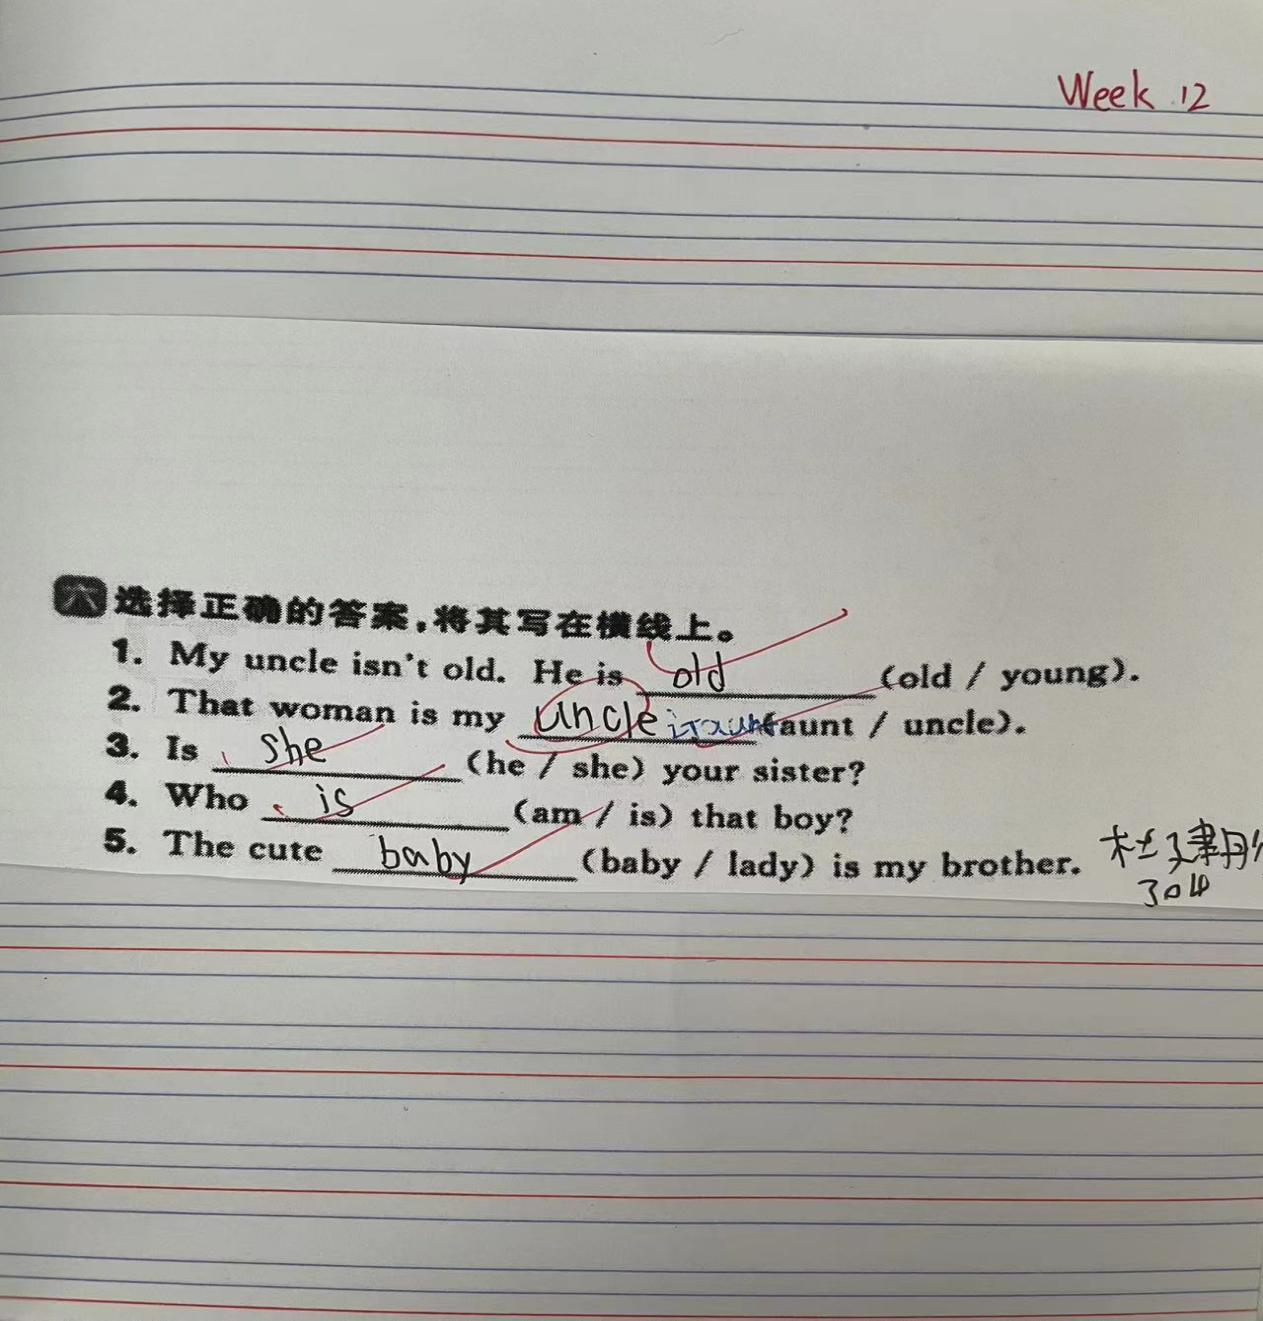 Week 12
六 选择正确的答案,将其写在横线上。
1. My uncle isn't old. He is old (old / young).
2. That woman is my uncle 订aunt (aunt / uncle).
3. Is she (he / she) your sister?
4. Who is (am / is) that boy?
5. The cute baby (baby / lady) is my brother.
304